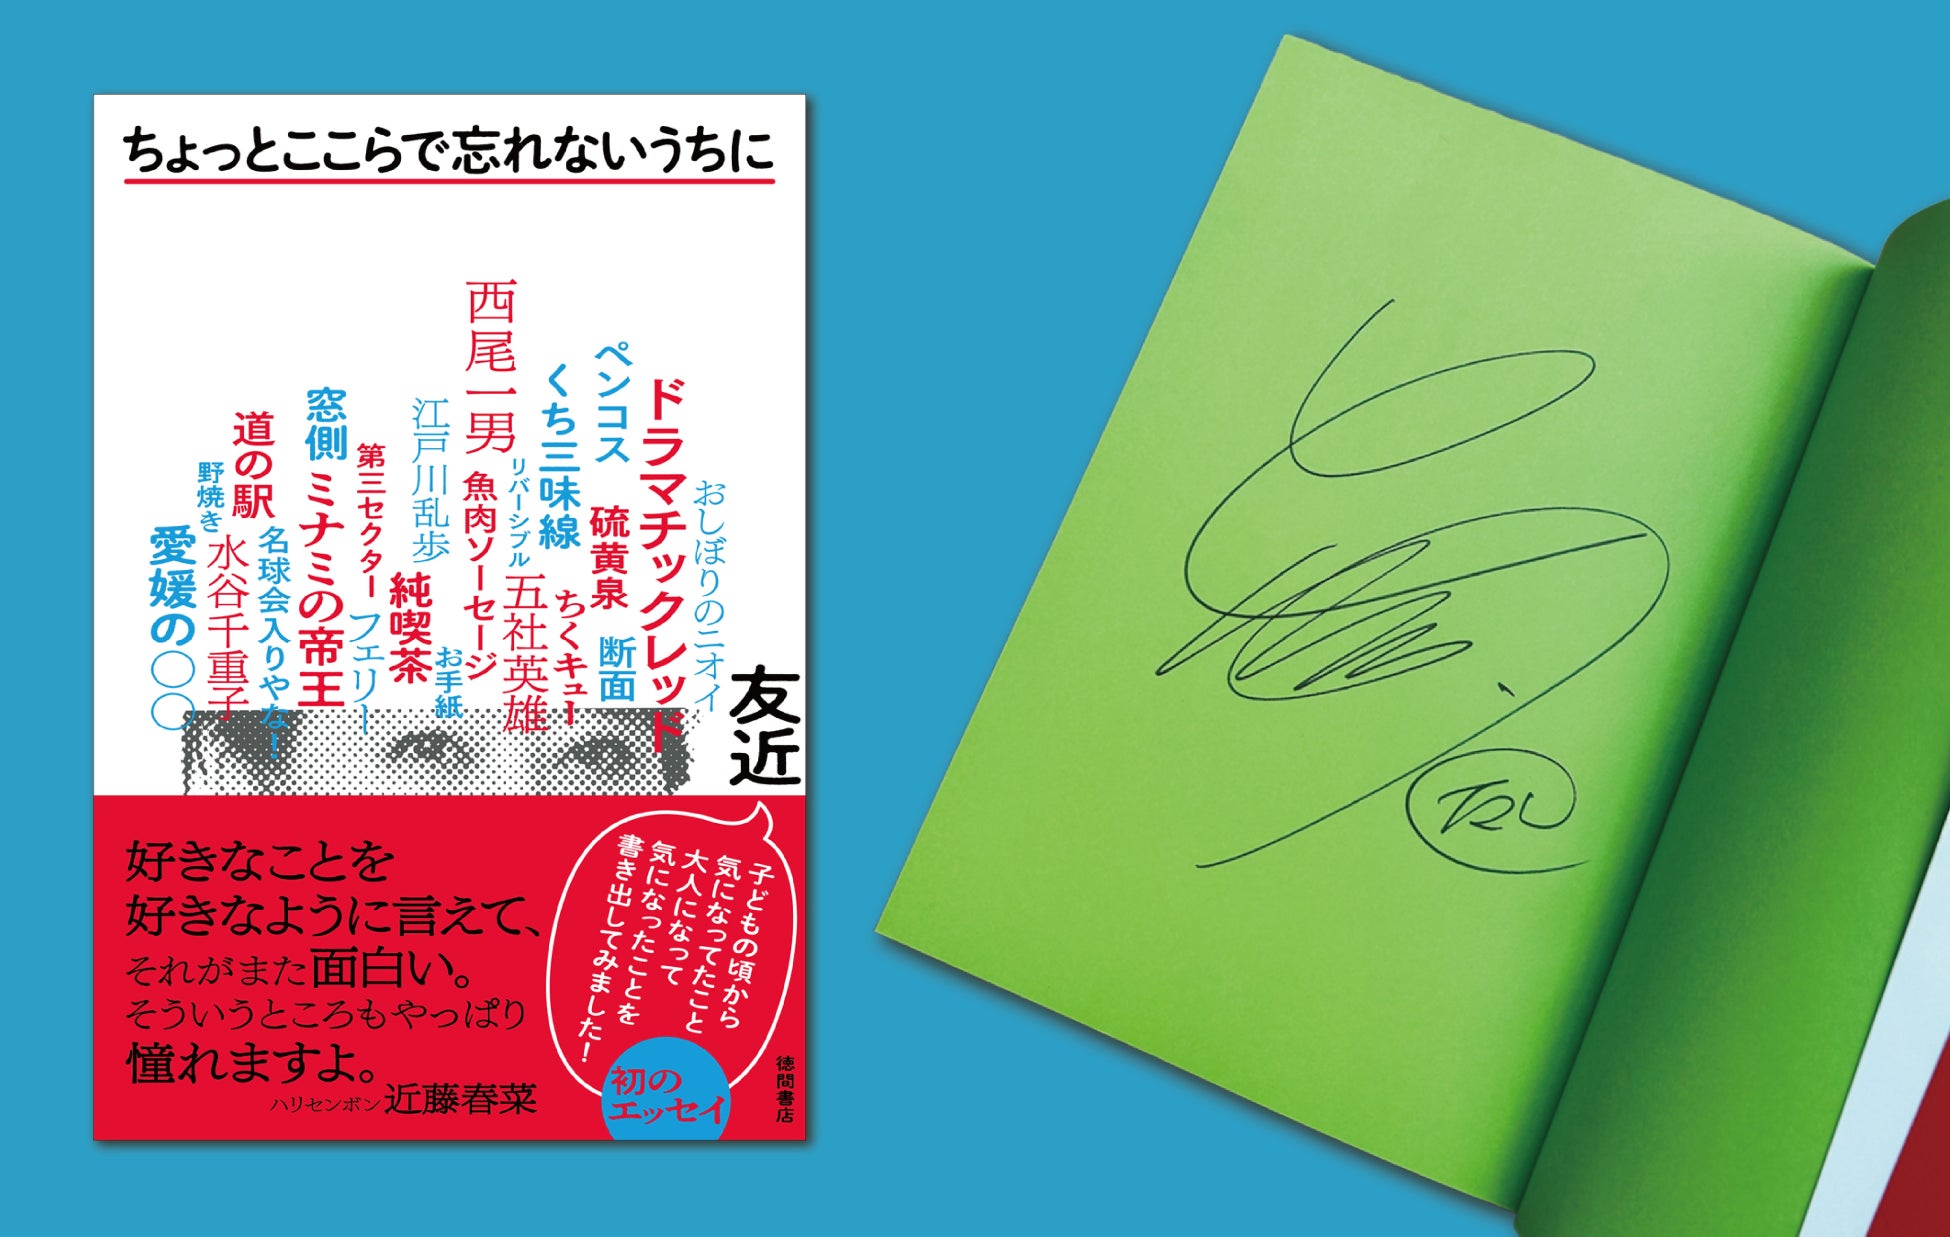 ちょっとここらで忘れないうちに
おしぼりのニオイ
ドラマチックレッド
ペンコス
硫黄泉
断面
くち三味線
ちくキュー
リバーシブル
五社英雄
西尾一男
魚肉ソーセージ
お手紙
江戸川乱歩
純喫茶
第三セクター
フェリー
窓側
ミナミの帝王
名球会入りやな!
道の駅
水谷千重子
野焼き
愛媛の〇〇
友近
子どもの頃から
気になってたこと
大人になって
気になったことを
書き出してみました!
初の
エッセイ
好きなことを
好きなように言えて、
それがまた面白い。
そういうところもやっぱり
憧れますよ。
ハリセンボン 近藤春菜
徳間書店